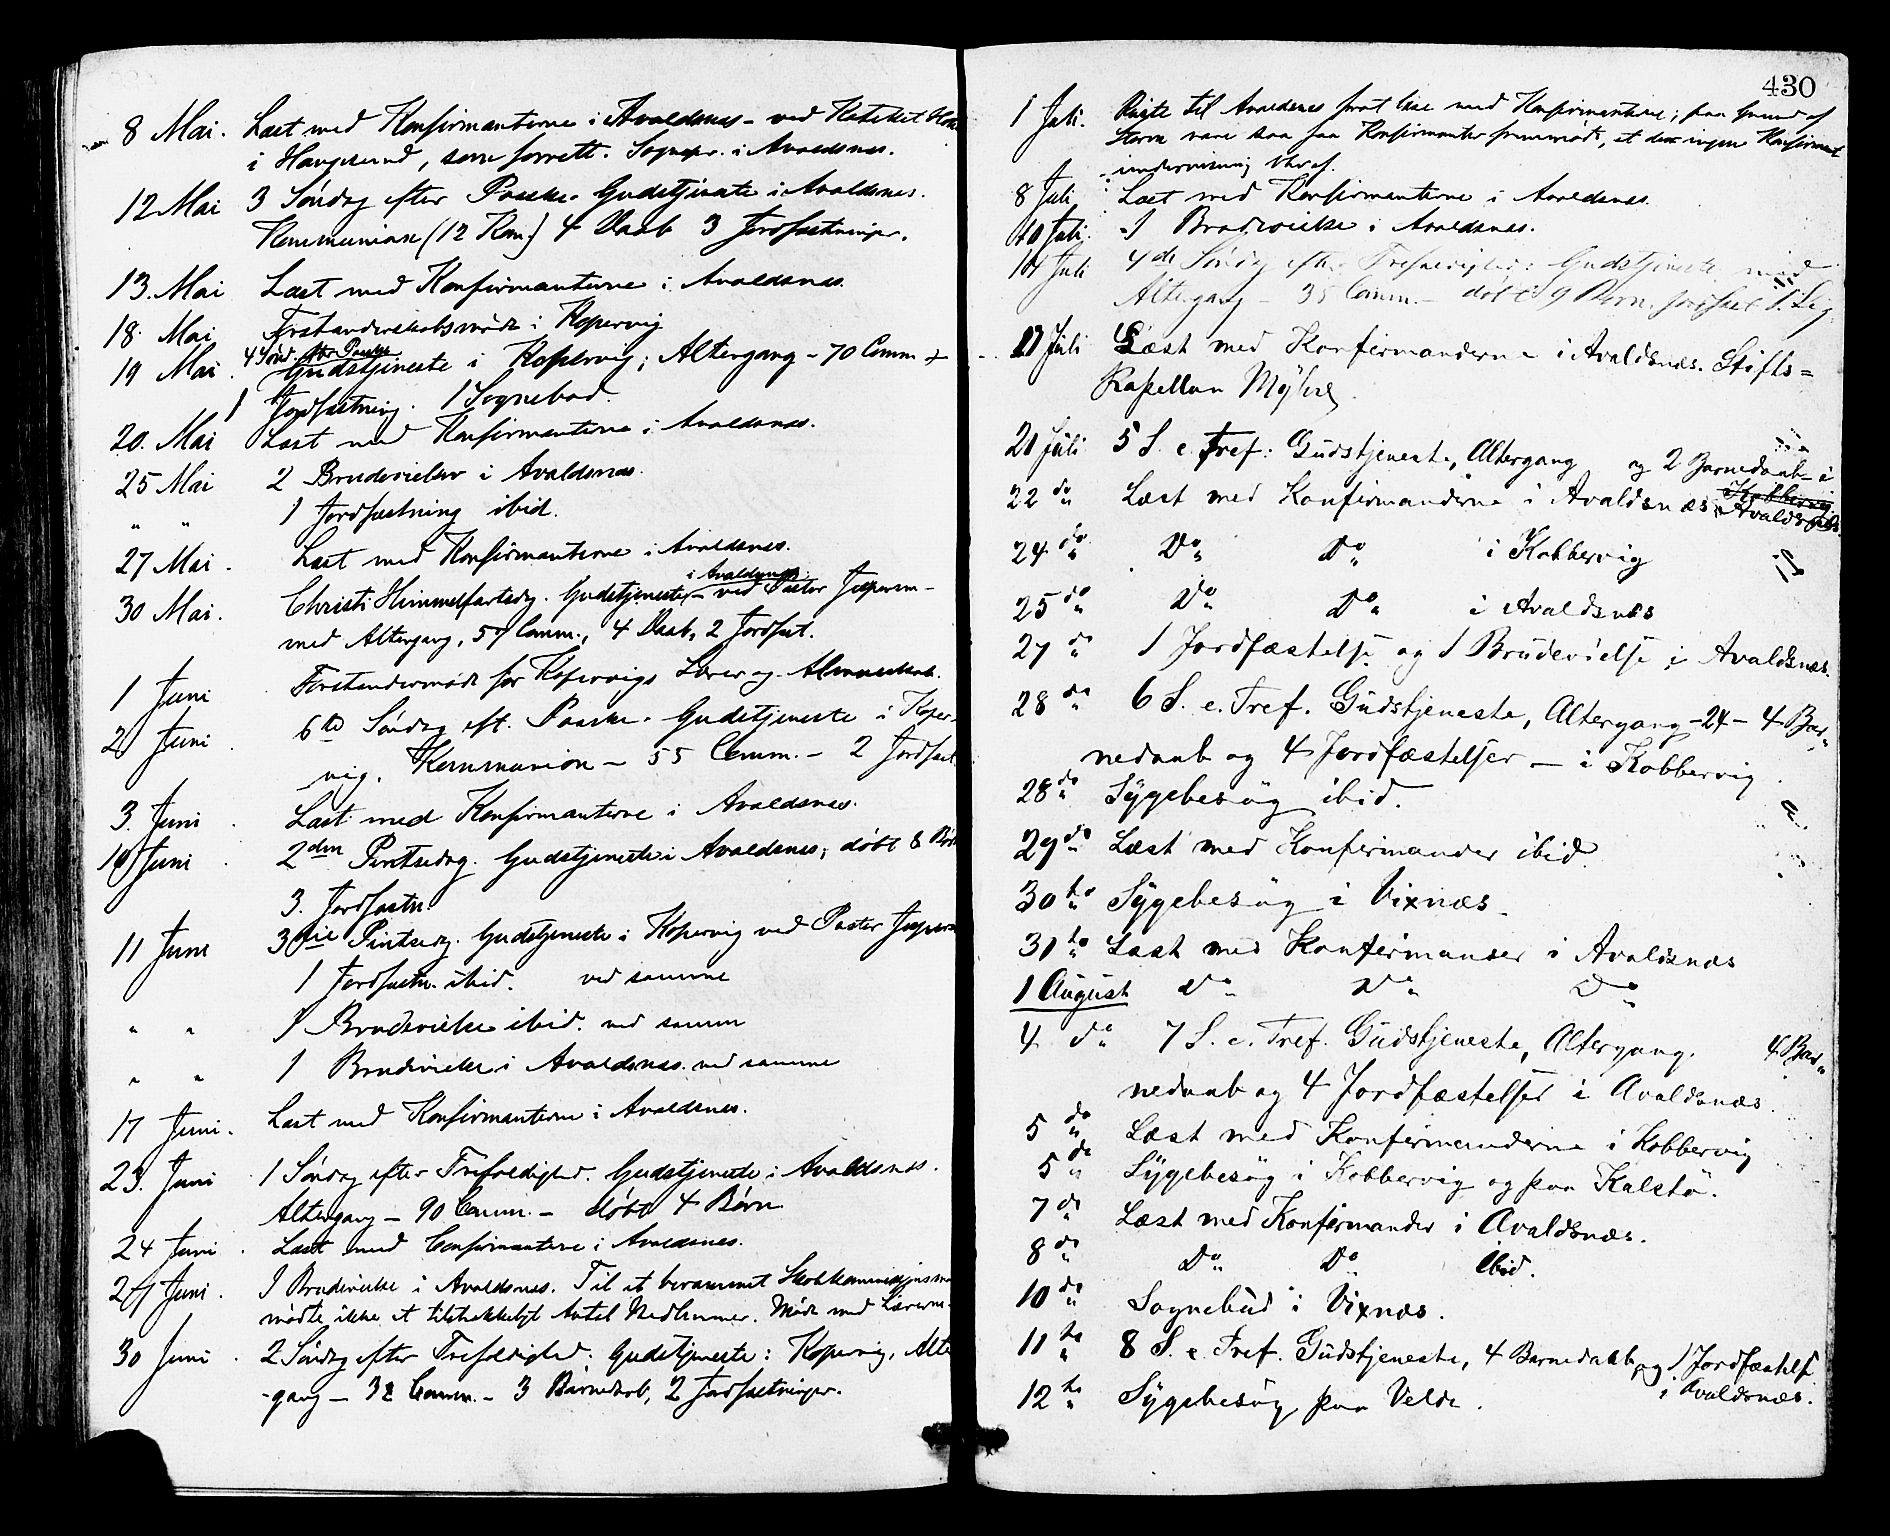 8 Mai. Læst med Konfirmanterne i Avaldsnes - ved Kateket
i Haugesund, som forrett. Sognepr. i Avaldsnes.
12 Mai 3 Søndag efter Paaske. Gudstjeneste i Avaldsnes.
Kommunion (12 Kom.) 4 Daab 3 Jordfæstninger.
13. Mai Læst med Konfirmanterne i Avaldsnes.
18. Mai Forstanderskabsmøde i Kopervig
4 Sønd. efter Paaske
19 Mai. Gudstjeneste i Kopervig; Altergang - 70 Comm.
1 Jordfæstning. 1 Sognebud.
20. Mai Læst med Konfirmanterne i Avaldsnes.
25 Mai 2 Brudevielser i Avaldsnes.
" " 1 Jordfæstning ibid.
27 Mai. Læst med Konfirmanterne i Avaldsnes.
i Avaldsnes
30 Mai. Christi Himmelfartsdag. Gudstjeneste - ved Pastor Jespersen -
med Altergang, 57 Comm., 4 Daab, 2 Jordfæst.
1 Juni Forstandermøde for Kopervigs Borger og Almueskole.
2 Juni. 6te Søndag eft. Paaske. Gudstjeneste i Koper-
vig. Kommunion - 55 Comm. - 2 Jordfæst
3. Juni. Læst med Konfirmanterne i Avaldsnes.
10 Juni. 2den Pintsedag. Gudstjeneste i Avaldsnes; døbt 8 Børn
3. Jordfæstn.
11 Juni 3die Pintsedag. Gudstjeneste i Kopervig ved Pastor Jespersen
1 Jordfæstn. ibid. ved samme
" " 1 Brudevielse ibid. ved samme
" " 1 Brudevielse i Avaldsnes ved samme
17 Juni. Læst med Konfirmanterne i Avaldsnes.
23. Juni 1 Søndag efter Trefoldighed. Gudstjeneste i Avaldsnes.
Altergang - 90 Comm. - døbt 4 Børn
24 Juni. Læst med Confirmanterne i Avaldsnes.
Juni. 1 Brudevielse i Avaldsnes. Til et berammet Skolekommissjons
mødte ikke et tilstrækkeligt Antal Medlemmer. Møde med Lærerne.
30 Juni. 2 Søndag efter Trefoldighed. Gudstjeneste i Kopervig, Alter
-gang - 32 Comm. - 3 Barnedaab, 2 Jordfæstninger.
430
1 Juli. Reiste til Avaldsnes for at læse med Konfirmanterne; paa Grund af
Storm vare saa faa Konfirmanter fremmødt, at der ingen Konfirmant
undervisning blev af.
8 Juli Læst med Konfirmanterne i Avaldsnes.
10 Juli. 1 Brudevielse i Avaldsnes.
14 Juli 4de Søndag efter Trefoldighed: Gudstjeneste med
Altergang - 35 Comm. - døbt 9 Børn, jordfæstet 1 Lig
Juli Læst med Konfirmanderne i Avaldsnæs. Stifts=
Kapellan Myhre
21 Juli 5 S. e. Tref: Gudstjeneste, Altergang og 2 Barnedaab i
Kobbervig
Avaldsnæs
22 do Læst med Konfirmanderne i Avaldsnæs
24 do Do Do i Kobbervig
25 do Do Do i Avaldsnæs
27 do 1 Jordfæstelse og 1 Brudevielse i Avaldsnæs.
28 do 6 S. e. Tref. Gudstjeneste, Altergang -24- 4 Bar„
nedaab og 4 Jordfæstelser - i Kobbervig
28 do Sygebesøg ibid.
29 do Læst med Konfirmander ibid
30 do Sygebesøg i Vixnæs.
31 do Læst med Konfirmander i Avaldsnæs
1 August Do Do Do
4 do 7 S. e. Tref. Gudstjeneste, Altergang. 4 Bar„
nedaab og 4 Jordfæstelser i Avaldsnæs.
5 do Læst med Konfirmanderne i Kobbervig
5 do Sygebesøg i Kobbervig og paa Kalstø.
7 do Læst med Konfirmander i Avaldsnæs.
8 do Do Do ibid.
10 do Sognebud i Vixnæs.
11 do 8 S. e. Tref. Gudstjeneste, 4 Barnedaab og 1 Jordfæstelse
i Avaldsnæs.
12 do Sygebesøg paa Velde.